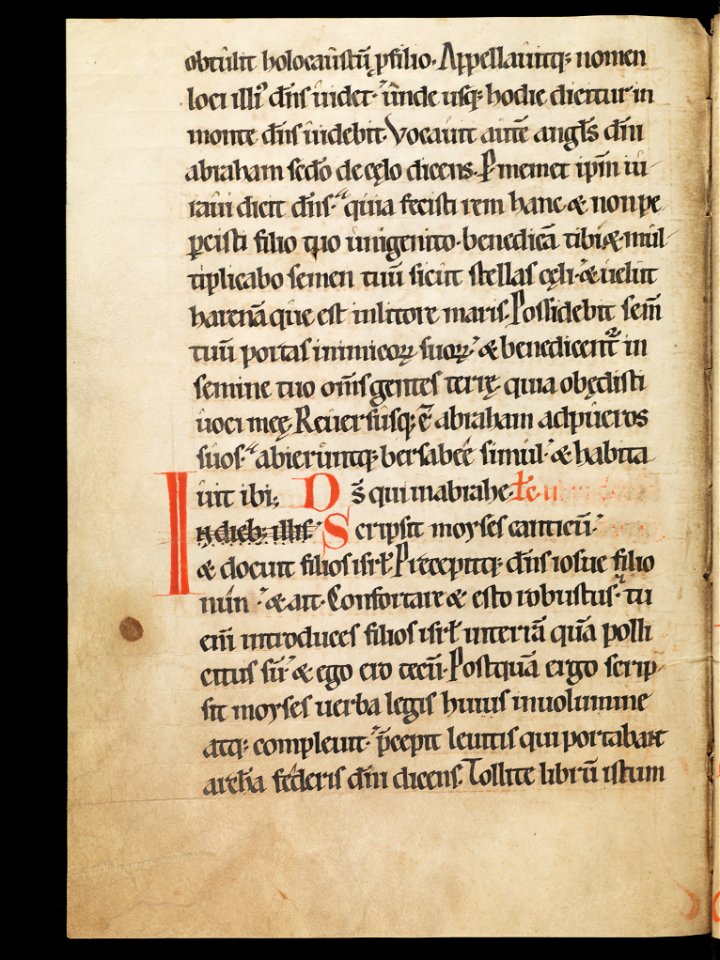 obtulit holocaustū ꝓfilio. Appellauitq; nomen
loci illiꝰ dn̄s uidet. unde usq; hodie dicitur in
monte dn̄s uidebit. Vocauit autē angl̄s dn̄i
abraham secd̄o de cęlo dicens. P memet ipm̄ iu
raui dicit dn̄s. quia fecisti rem hanc & non pe
ꝑcisti filio tuo unigenito. benedicā tibi & mul
tiplicabo semen tuū sicut stellas cęli. & uelut
harenā que est in littore maris. Possidebit sem̄
tuū portas inimicoꝝ suoꝝ. & benedicent᷑ in
semine tuo om̄s gentes terrę. quia obędisti
uoci meę. Reuersusq; ē abraham ad pueros
suos. abieruntq; bersabeē simul. & habita
uit ibi; Ds̄ qui in abrahe. t̄c
In dieb; illis. Scripsit moyses canticū.
& docuit filios isrl̄. Precepitq; dn̄s iosue filio
nun. & ait. Confortare & esto robustus. tu
eni̅ introduces filios isrl̄ in terrā quā polli
citus su̅. & ego ero tecū. Postquā ergo scrip
sit moyses uerba legis huius in uolumine
atq; compleuit. p̄cepit leuitis qui portabant
archā federis dn̄i dicens. Tollite librū istum